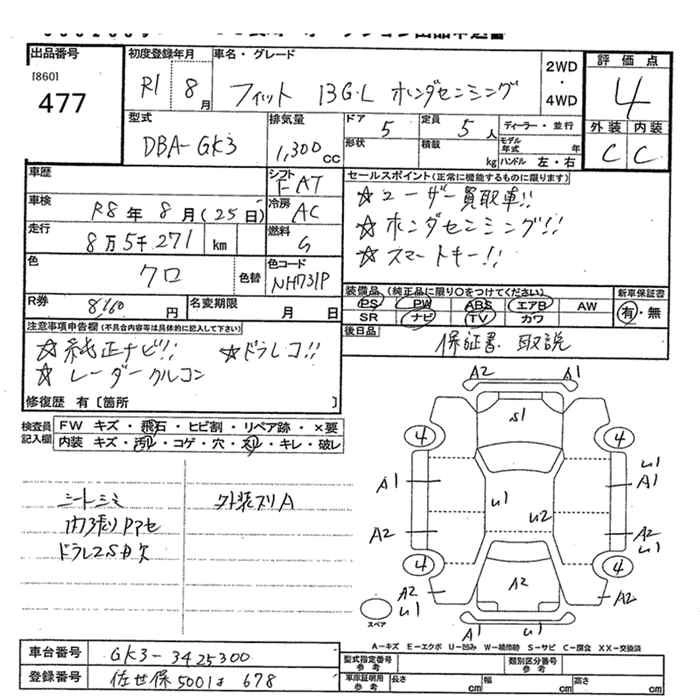 出品番号
[860]
477
初度登録年月
R1 8月
車名・グレード
フィット 13G・L ホンダセンシング
2WD
・
4WD
評価点
4
外装 内装
C C
型式
DBA-GK3
排気量
1,300cc
ドア 5
定員 5人
形状
積載 kg
ディーラー・並行
モデル年式 年
ハンドル 左・右
車歴
シフト
FAT
車検
R8年8月(25日)
冷房
AC
走行
8万5千271km
燃料
G
色
クロ
色替
色コード
NH731P
R券
8,160円
名変期限 月 日
セールスポイント(正常に機能するものに限ります)
☆ユーザー買取車!!
☆ホンダセンシング!!
☆スマートキー!!
装備品(純正品に限り○をつけてください)
PS PW ABS エアB AW
SR ナビ TV カワ
新車保証書
有・無
後日品
保証書 取説
注意事項申告欄(不具合内容等は具体的に記入して下さい)
☆純正ナビ!! ☆ドラレコ!!
☆レーダークルコン
修復歴 有[箇所 ]
検査員記入欄
FW キズ・飛石・ヒビ割・リペア跡・×要
内装 キズ・汚れ・コゲ・穴・スリ・キレ・破レ
シートシミ
外装スリA
A2 A1
S1
4 4
A1
U1
A1
U1
U2
A2
A2
U1
4 4
A2
A2
U1
A2
U1
スペア
A-キズ E-エクボ U-凹み W-補修跡 S-サビ C-腐食 XX-交換済
車台番号
GK3-3425300
登録番号
佐世保 500 678
型式指定番号 参考
類別区分番号 参考
車庫証明用 参考
長さ cm
幅 cm
高さ cm